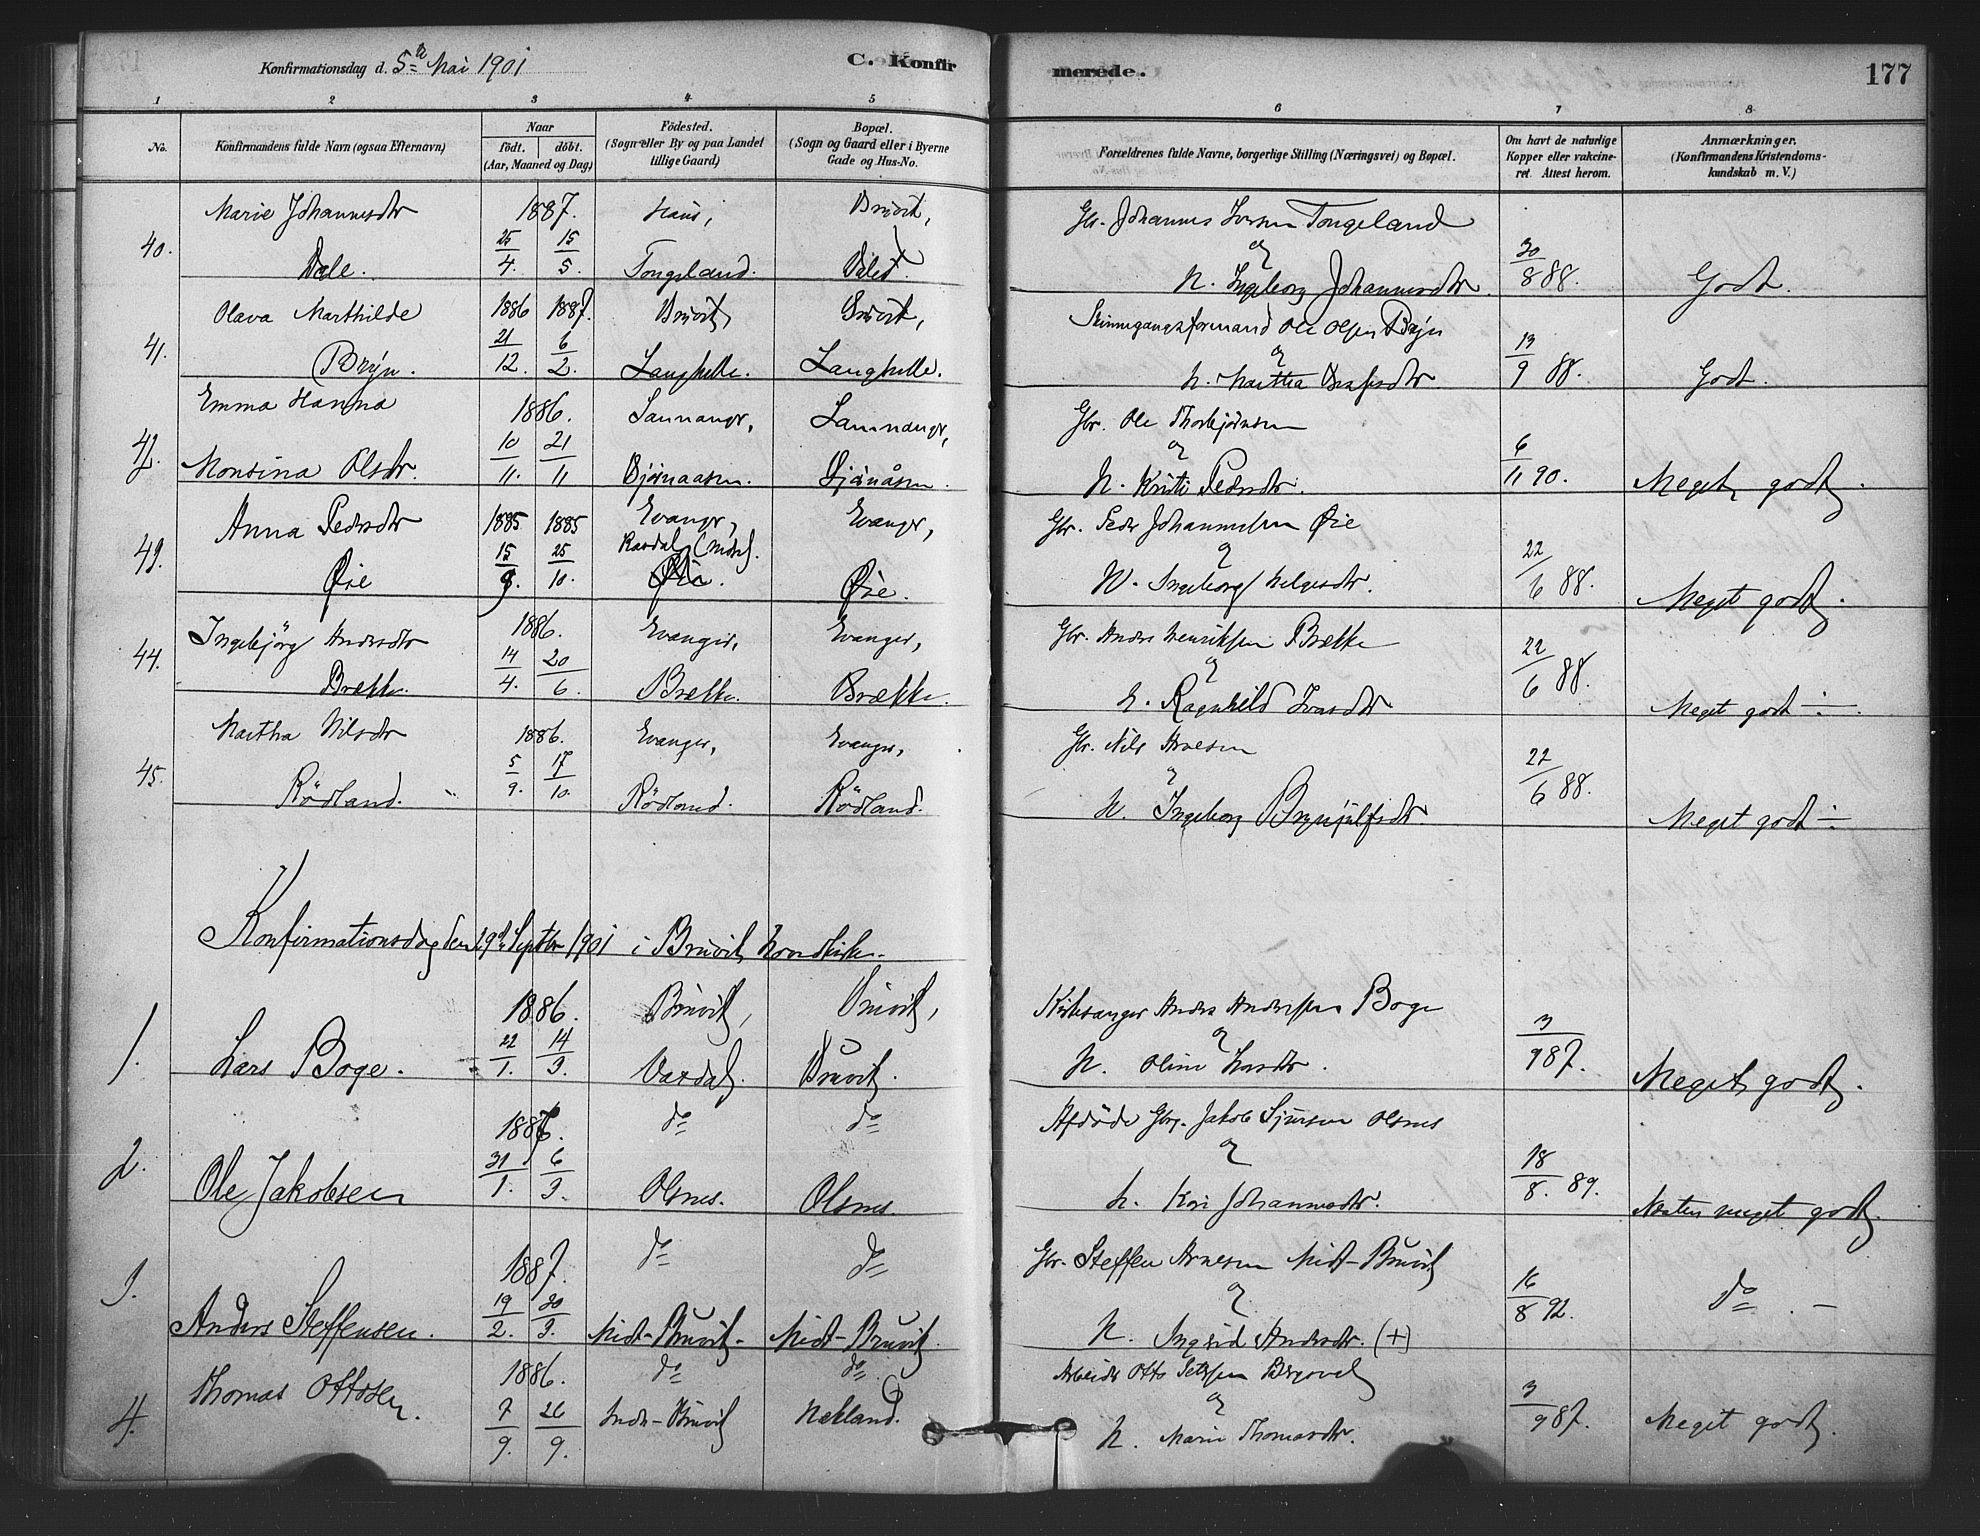 Konfirmationsdag d. 5te Mai 1901
C. Konfirmerede.
177
1 2 3 4 5 6 7 8
No.
Konfirmandens fulde Navn (ogsaa Efternavn)
Naar
født. døbt.
(Aar, Maaned og Dag)
Fødested.
(Sogn eller By og paa Landet
tillige Gaard)
Bopæl.
(Sogn og Gaard eller i Byerne
Gade og Hus-No.
Forældrenes fulde Navne, borgerlige Stilling (Næringsvei) og Bopæl.
Om havt de naturlige
Kopper eller vakcine-
ret. Attest herom.
Anmærkninger.
(Konfirmandens Kristendoms-
kundskab m. V.)
Marie Johannesdtr 1887. Haus, Bruvik, Gbr. Johannes Iversen Tongeland
40. Dale. 25/4. 15/5. Tongeland. Dale. og 30/8 88.
H. Ingeborg Johannesdtr. Godt.
Olava Marthilde 1886 1887. Bruvik, Bruvik, Ole Olsen Brÿn
41. Brÿn. 21/12. 6/2. Langhelle. Langhelle. og 13/9 88.
H. Martha Godt.
Emma Hanna 1886. Samnanger, Samnanger, Gbr. Ole Thorbjørnsen
42. Monsina Olsdtr. 10/11. 21/11 Bjørnaasen. Bjørnåsen. og 6/11 90.
H. Kristi Pedersdtr. Meget godt.
Anna Pedersdtr 1885 1885 Evanger, Evanger, Gbr. Peder Johannessen Øie
43. Øie 15/9. 25/10. Rasdal Øie. Øie. og 22/6 88.
H. Ingeborg Helgesdtr. Meget godt.
Ingebjørg Andersdtr 1886. Evanger, Evanger, Gbr. Anders Henriksen Brække
44. Brække. 14/4. 20/6. Brække. Brække. og 22/6 88.
H. Ragnhild Ivarsdtr Meget godt
Martha Nilsdtr 1886. Evanger, Evanger, Gbr. Nils Arnesen
45. Rødland. 5/9. 17/10. Rødland. Rødland. og 22/6 88.
H. Ingeborg Brynjulfsdtr. Meget godt
Konfirmationsdag den 29de Septbr 1901 i Bruvik hovedkirke.
1886. Bruvik, Bruvik, Kirkesanger Anders Andersen Boge
1. Lars Boge. 22/1. 14/3. Vaxdal. Bruvik. og 3/9 87.
H. Oline Larsdtr. Meget godt.
do do Afdøde Gbr. Jakob Sjursen Olsnes
2. Ole Jakobsen 31/1. 6/3. Olsnes. Olsnes. og 18/8. 89.
H. Kari Johannesdtr. Næsten meget godt.
1887. do do Gbr. Steffen Arnesen Midt-Bruvik
3. Anders Steffensen. 19/2. 20/3. Midt-Bruvik. Midt-Bruvik. og 16/8 92. do
H. Ingrid Andersdtr. (+)
1886. do do Arbeider Otto
4. Thomas Ottosen. 7/9. 26/9. Bruvik Hekland. og 3/9 87. Meget godt.
H. Marie Thomasdtr.